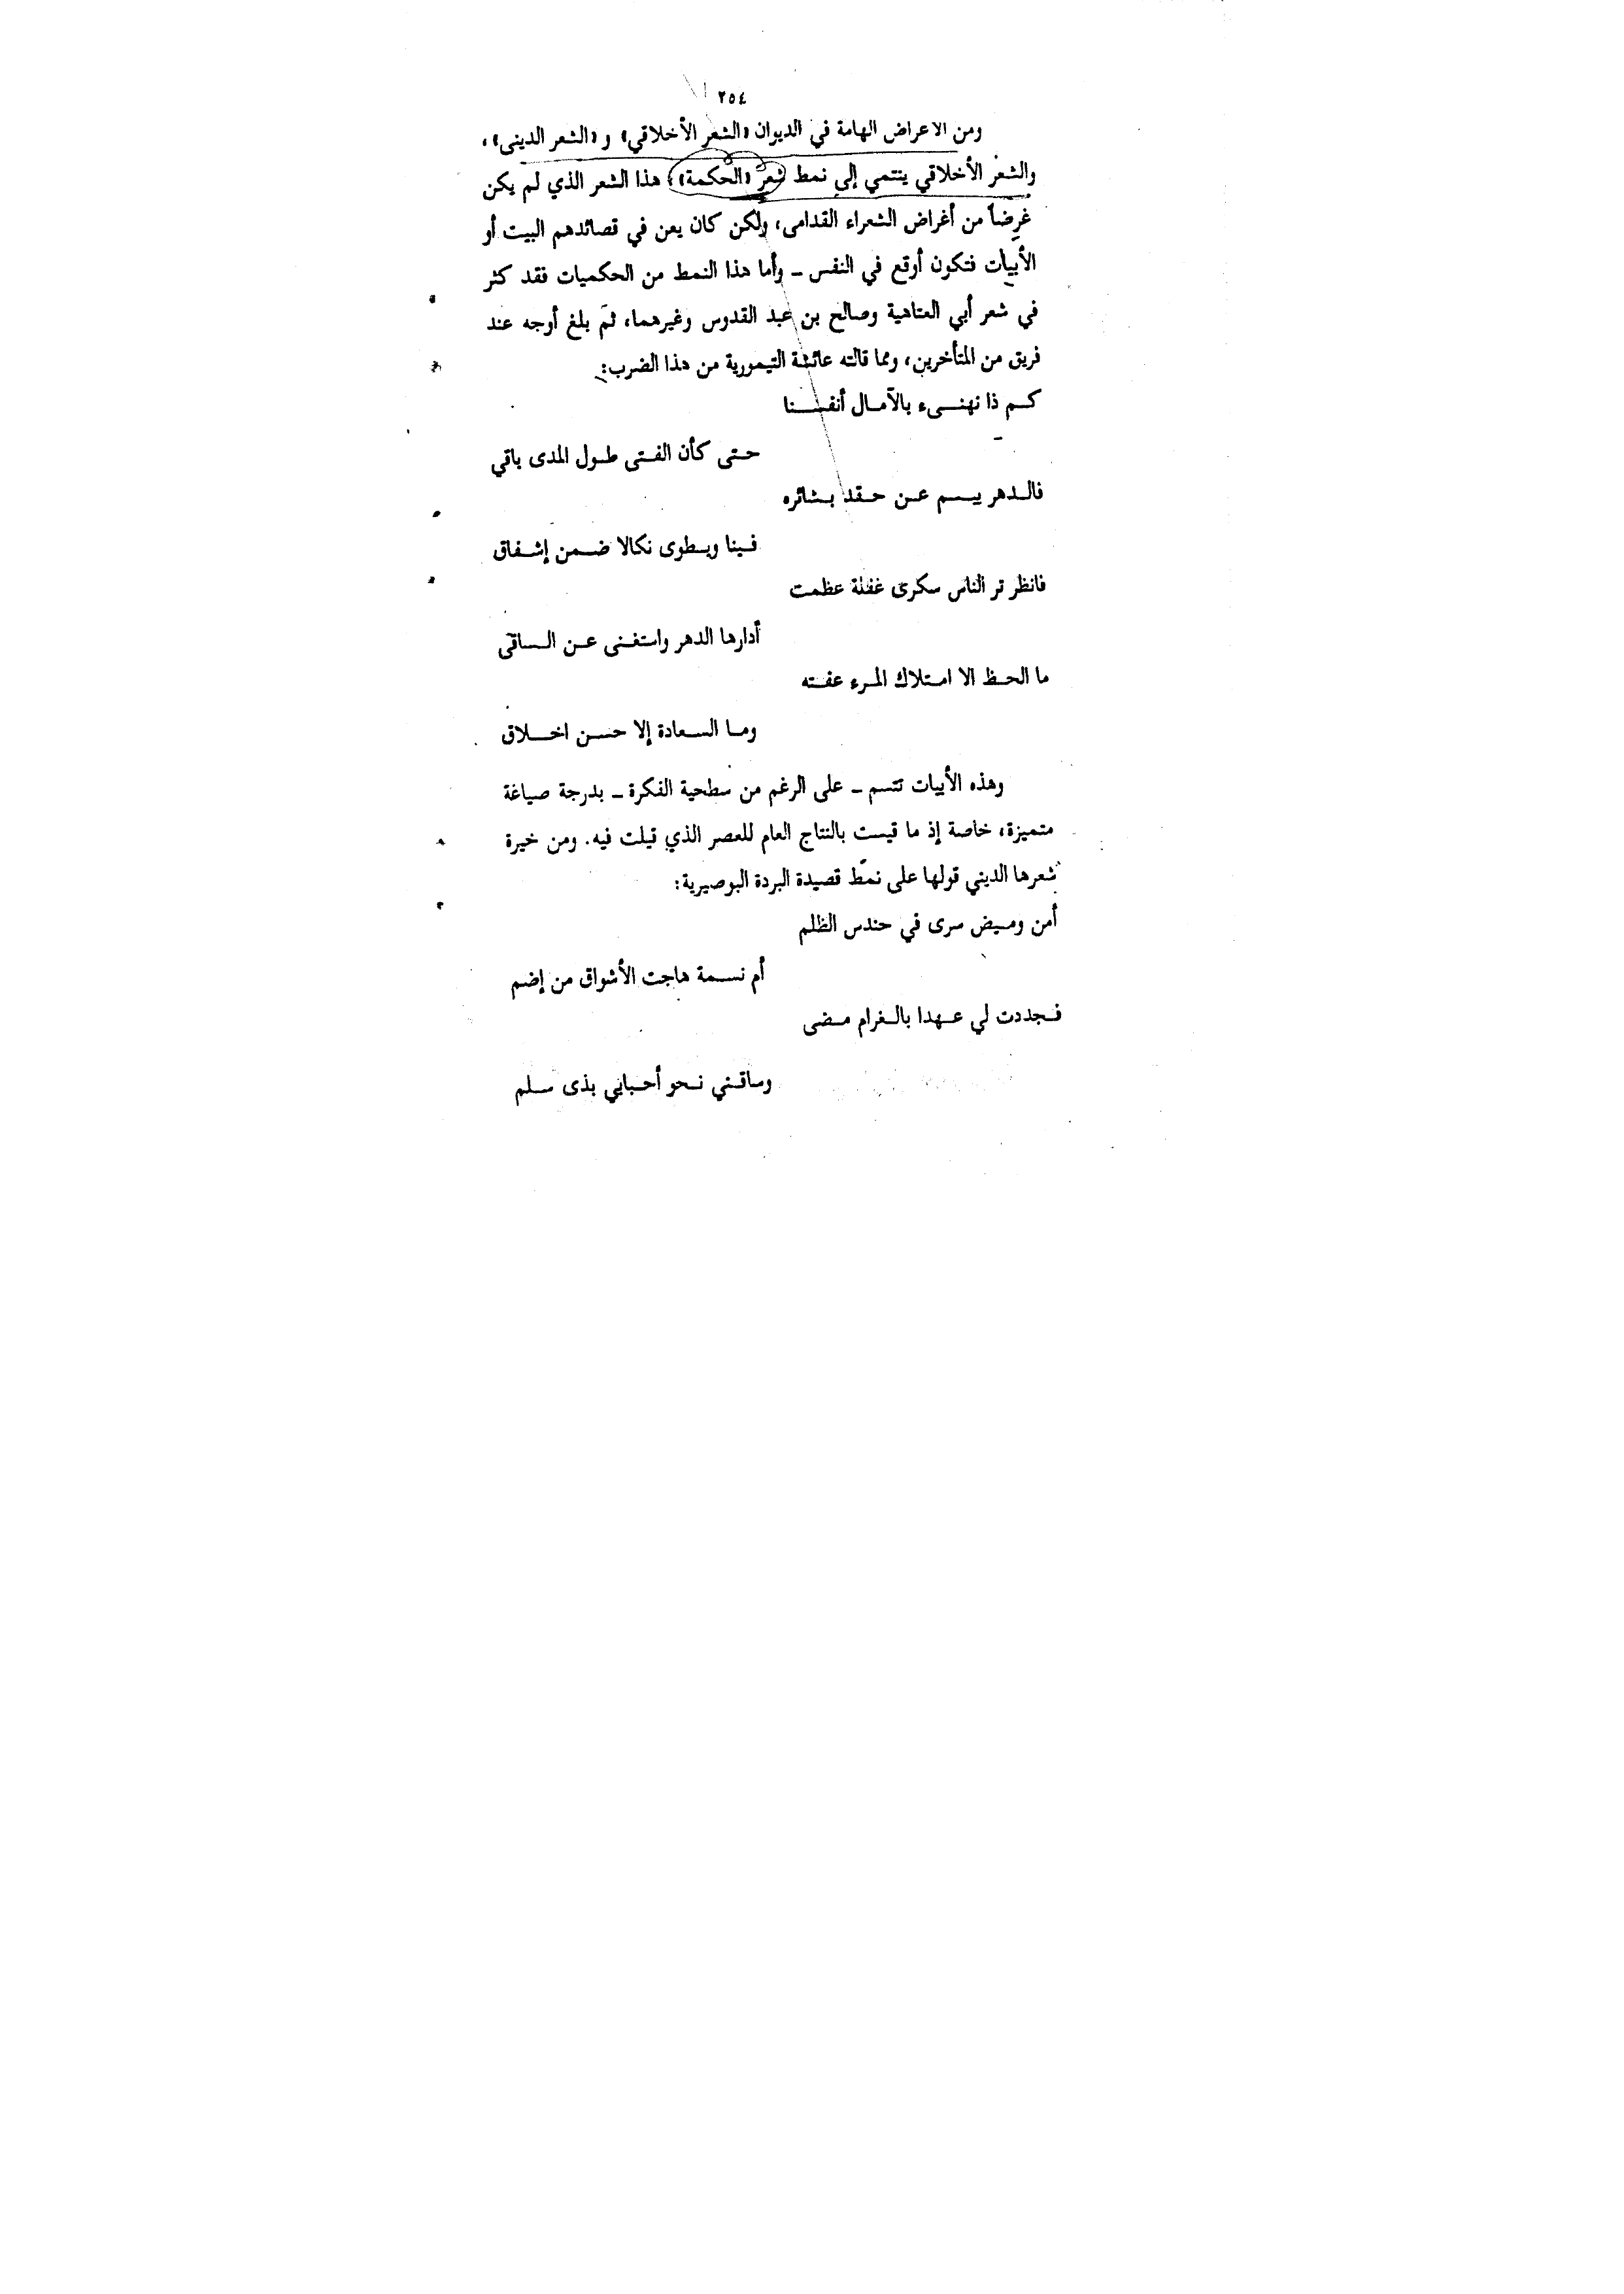 ٢٥٤
ومن الاعراض الهامة في الديوان «الشعر الأخلاقي» و«الشعر الدينى»،
والشعر الأخلاقي ينتمي إلى نمط شعر «الحكمة»، هذا الشعر الذي لم يكن
غرضاً من أغراض الشعراء القدامى، ولكن كان يعن في قصائدهم البيت أو
الأبيات فتكون أوقع في النفس ــ وأما هذا النمط من الحكميات فقد كثر
في شعر أبي العتاهية وصالح بن عبد القدوس وغيرهما، ثم بلغ أوجه عند
فريق من المتأخرين، ومما قالته عائشة التيمورية من هذا الضرب:
كم ذا نهنىء بالآمال أنفسنا
حتى كأن الفتى طول المدى باقي
فالدهر يبسم عن حقد بشائره
فينا ويطوى نكالا ضمن إشفاق
فانظر تر الناس سكرى غفلة عظمت
أدارها الدهر واستغنى عن الساقى
ما الحظ الا امتلاك المرء عفته
وما السعادة إلا حسن اخلاق
وهذه الأبيات تتسم ــ على الرغم من سطحية الفكرة ــ بدرجة صياغة
متميزة، خاصة إذ ما قيست بالنتاج العام للعصر الذي قيلت فيه. ومن خيرة
شعرها الديني قولها على نمط قصيدة البردة البوصيرية:
أمن وميض سرى في حندس الظلم
أم نسمة هاجت الأشواق من إضم
فجددت لي عهدا بالغرام مضى
وساقني نحو أحبابي بذى سلم